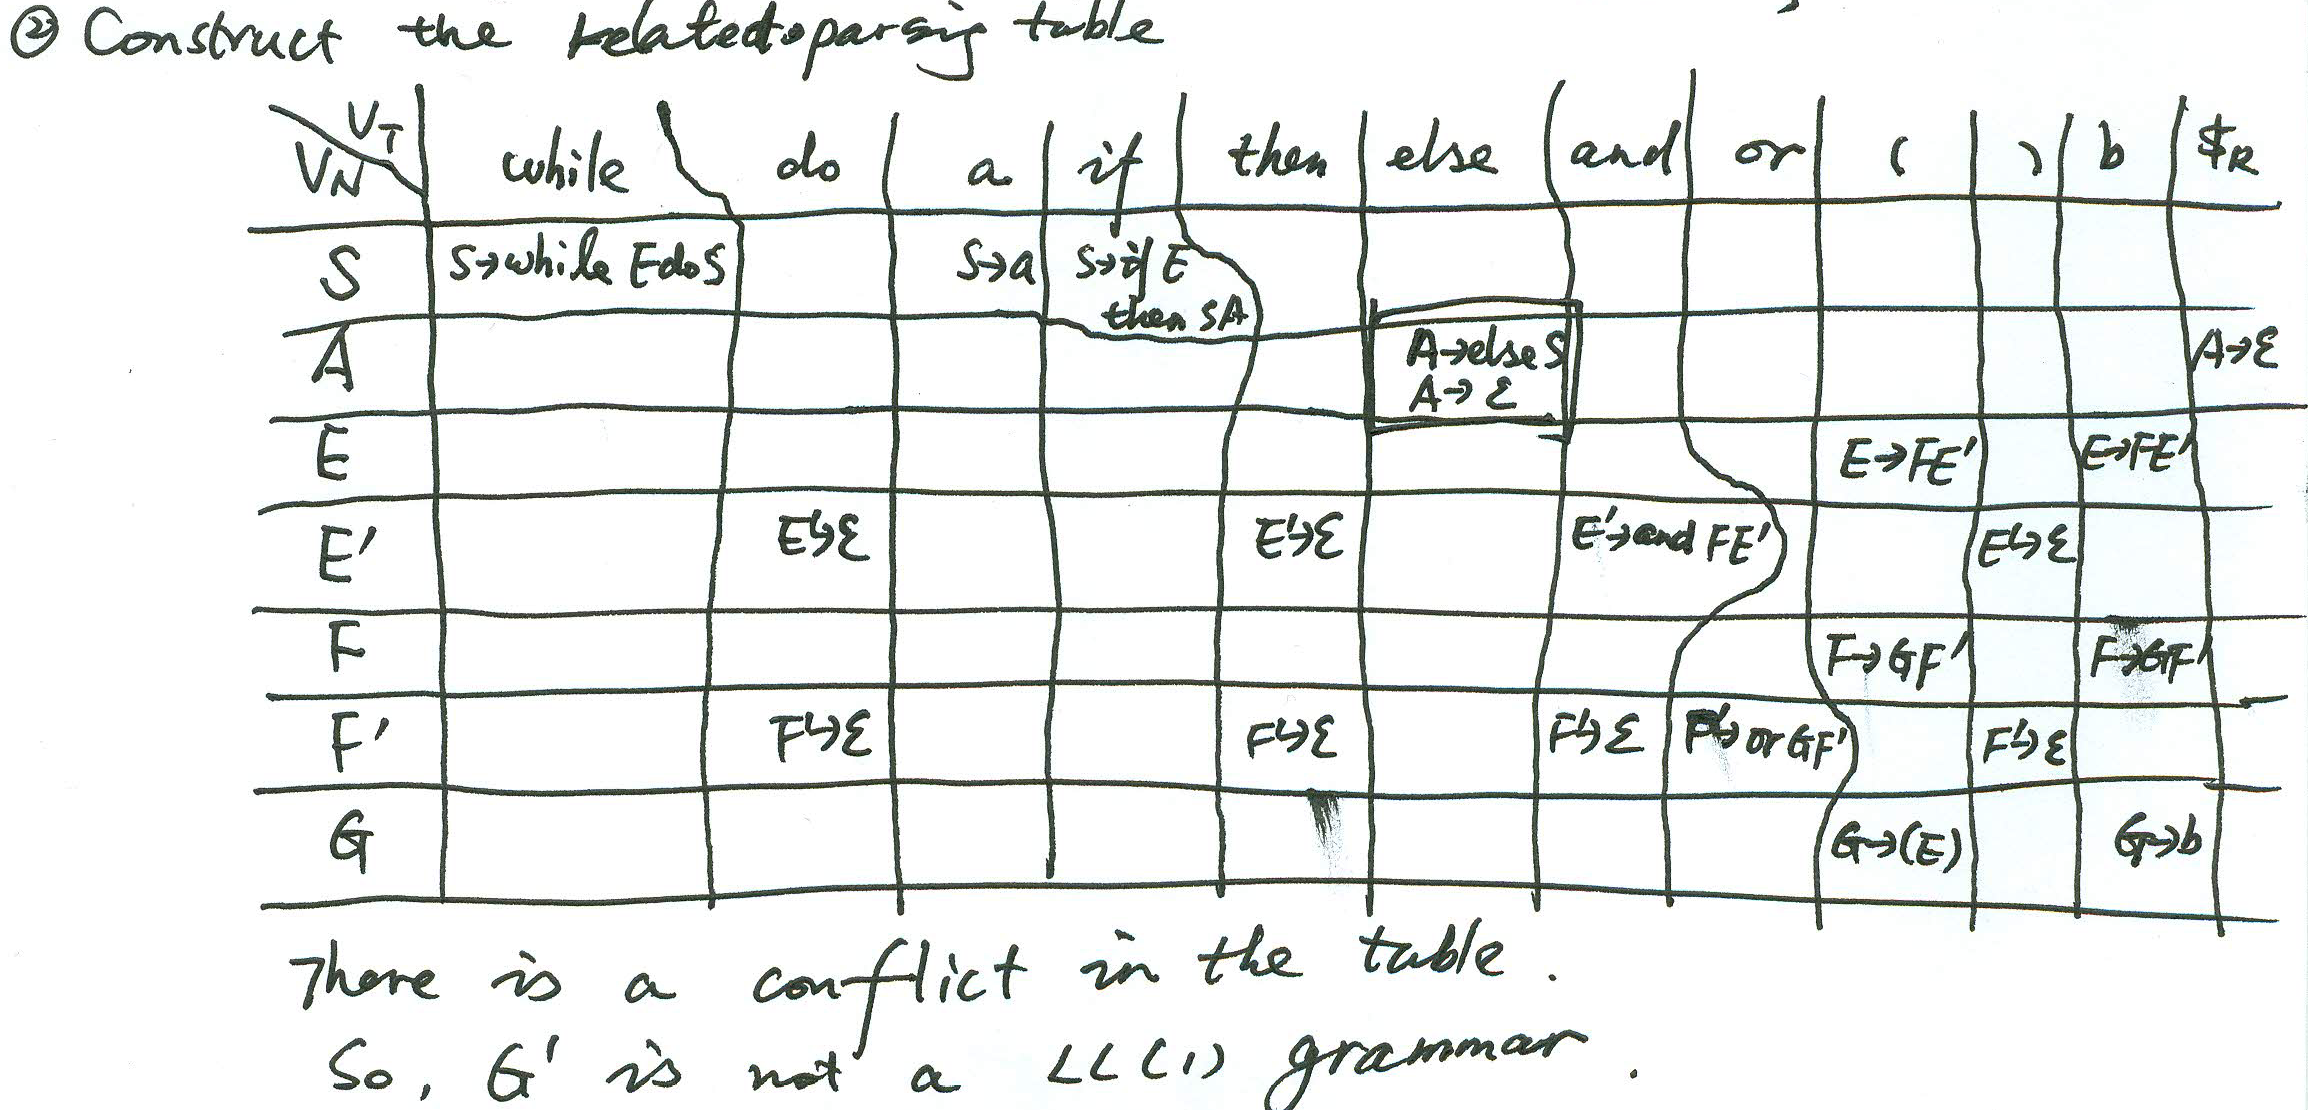 ② Construct the related parsing table
V_T
V_N while do a if then else and or ( ) b $R
S S→while E do S S→a S→if E
then SA
A A→else S A→ε
A→ε
E E→FE' E→FE'
E' E'→ε E'→ε E'→and FE' E'→ε
F F→GF' F→GF'
F' F'→ε F'→ε F'→ε F'→or GF' F'→ε
G G→(E) G→b
There is a conflict in the table.
So, G' is not a LL(1) grammar.